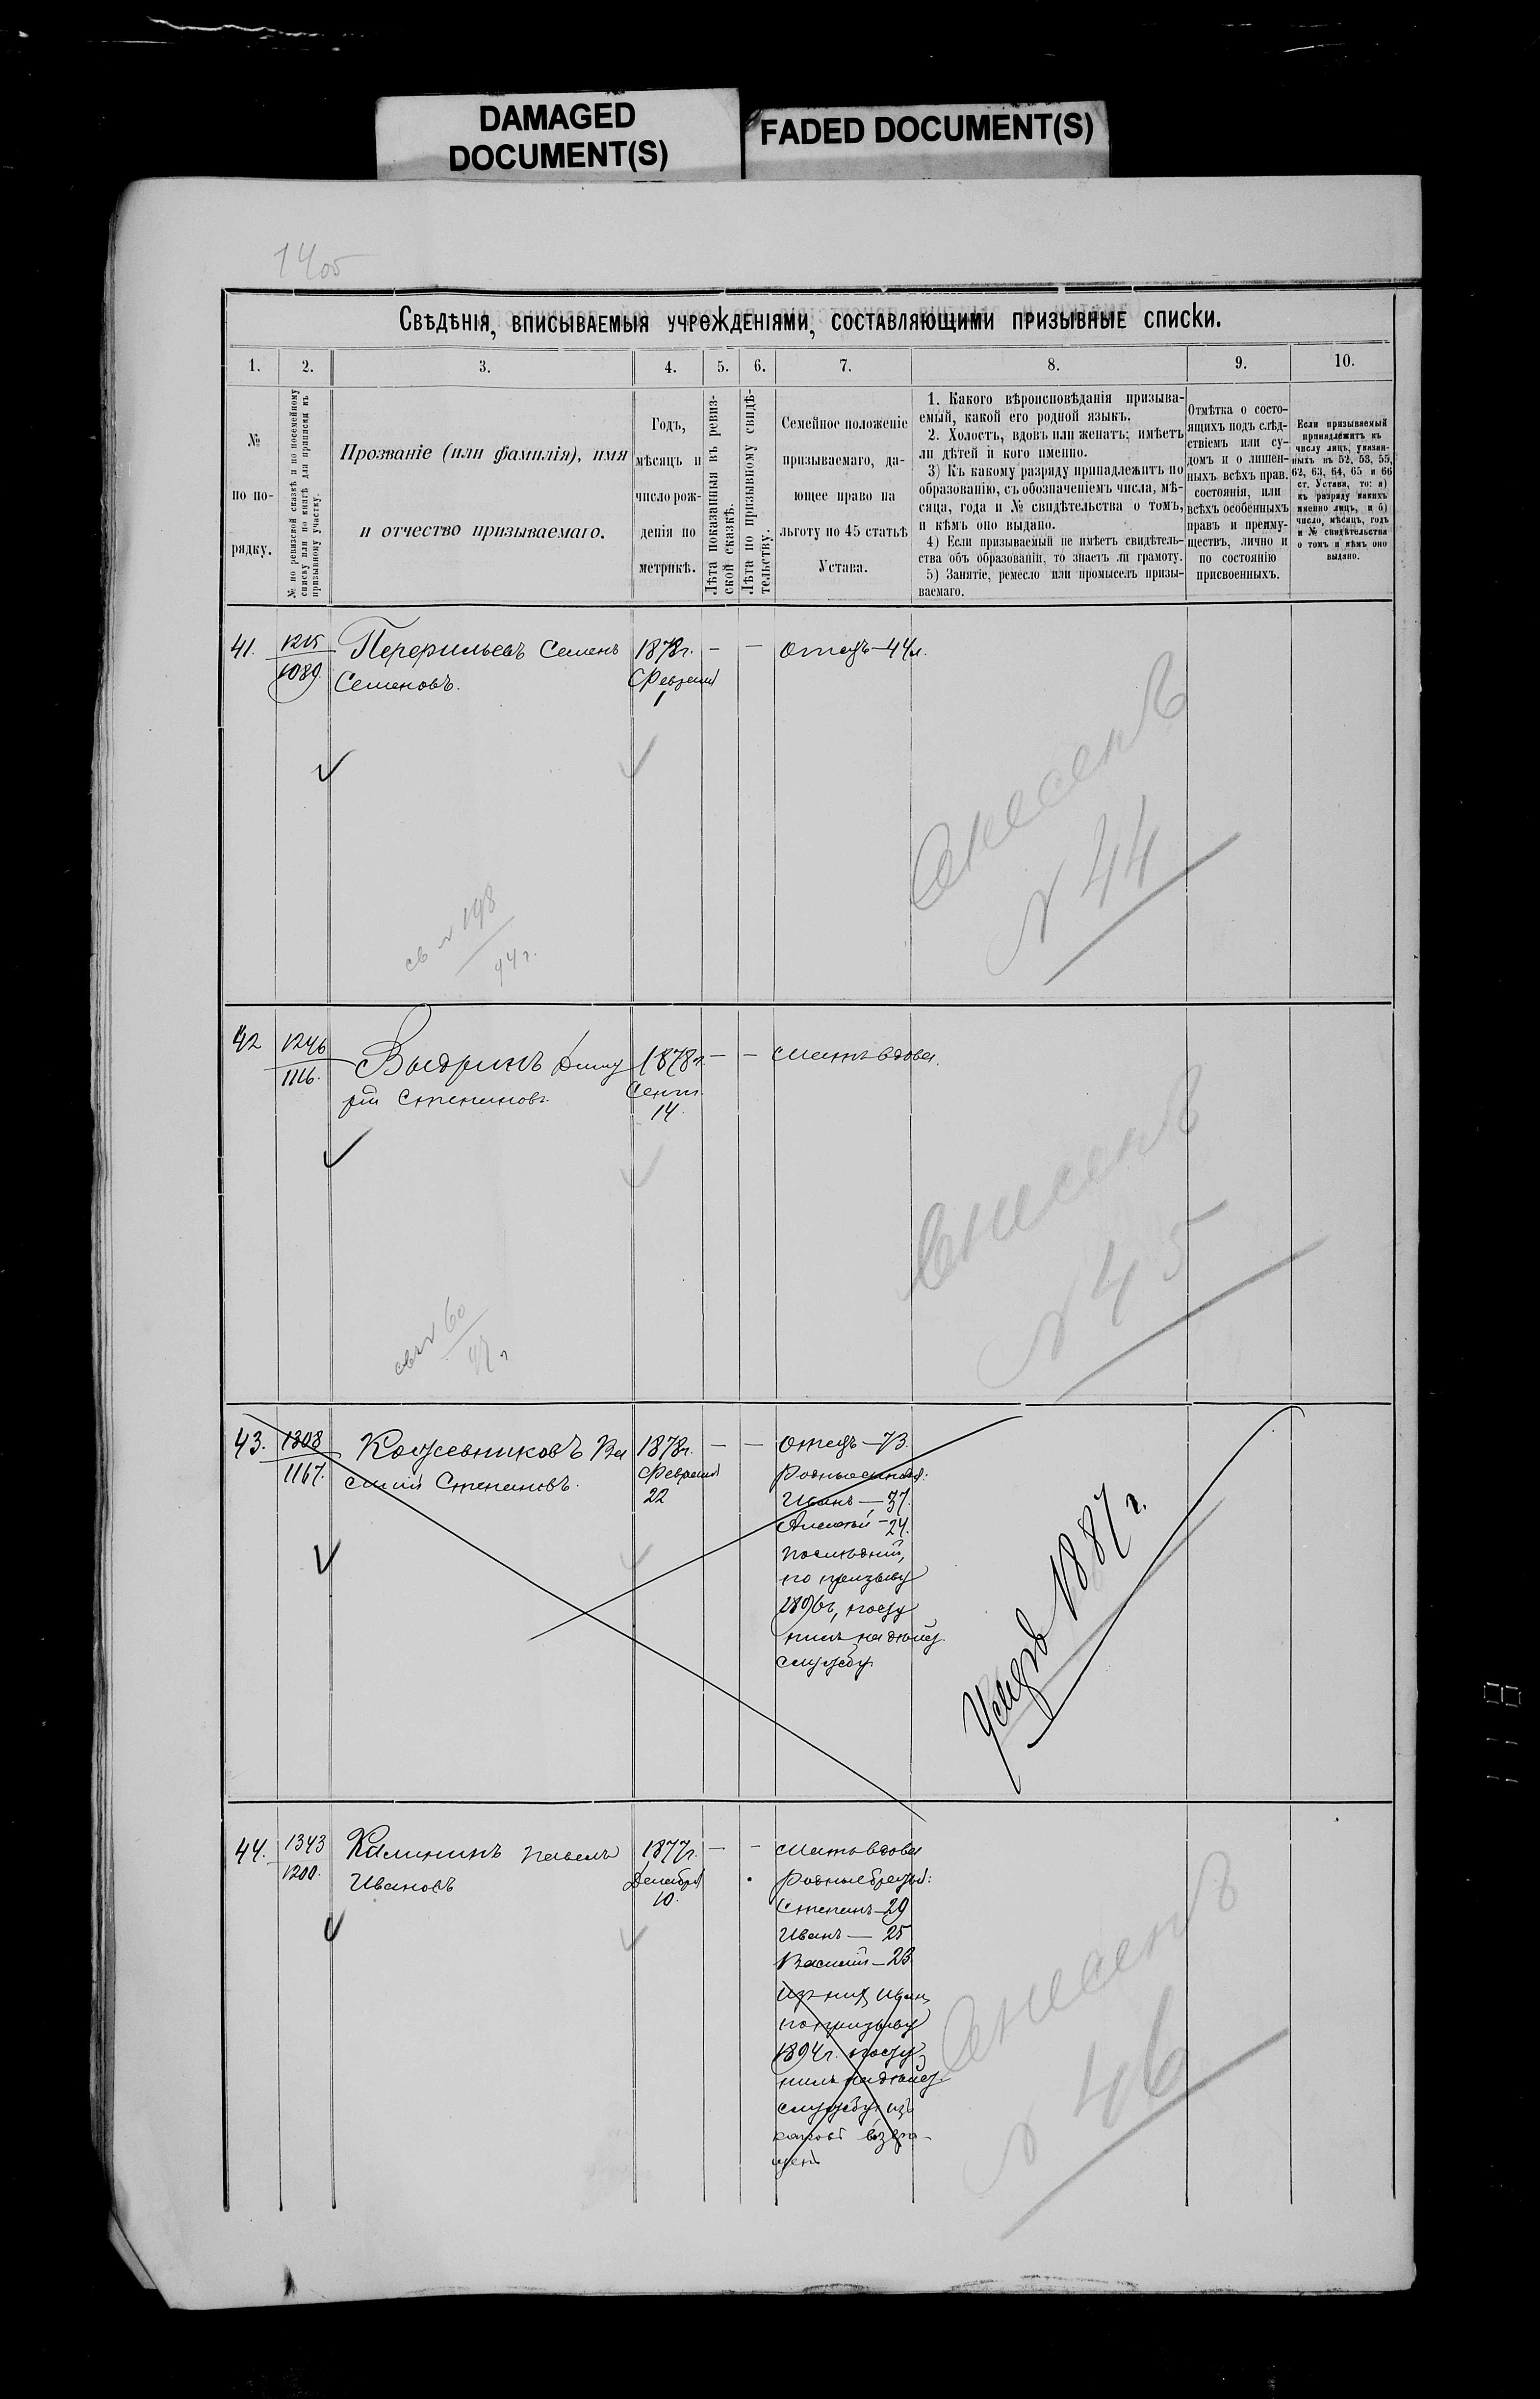 DAMAGED
DOCUMENT(S)
FADED DOCUMENT(S)
1405
Свѣдѣнія, вписываемыя учрежденіями, составляющими призывные списки.
1. 2. 3. 4. 5. 6. 7. 8. 9. 10.
№
по по-
рядку.
№ по ревизской сказкѣ и по посемейному
списку или по книгѣ для приписки къ
призывному участку.
Прозваніе (или фамилія), имя
и отчество призываемаго.
Годъ,
мѣсяцъ и
число рож-
денія по
метрикѣ.
Лѣта показанныя въ ревиз-
ской сказкѣ.
Лѣта по призывному свидѣ-
тельству.
Семейное положеніе
призываемаго, да-
ющее право на
льготу по 45 статьѣ
Устава.
1. Какого вѣроисповѣданія призыва-
емый, какой его родной языкъ.
2. Холостъ, вдовъ или женатъ; имѣетъ
ли дѣтей и кого именно.
3) Къ какому разряду принадлежитъ по
образованію, съ обозначеніемъ числа, мѣ-
сяца, года и № свидѣтельства о томъ,
и кѣмъ оно выдано.
4) Если призываемый не имѣетъ свидѣтель-
ства объ образованіи, то знаетъ ли грамоту.
5) Занятіе, ремесло или промыселъ призы-
ваемаго.
Отмѣтка о состо-
ящихъ подъ слѣд-
ствіемъ или су-
домъ и о лишен-
ныхъ всѣхъ прав.
состоянія, или
всѣхъ особенныхъ
правъ и преиму-
ществъ, лично и
по состоянію
присвоенныхъ.
Если призываемый
принадлежитъ къ
числу лицъ, указан-
ныхъ въ 52, 53, 55,
62, 63, 64, 65 и 66
ст. Устава, то: а)
къ разряду какихъ
именно лицъ, и б)
число, мѣсяцъ, годъ
и № свидѣтельства
о томъ и кѣмъ оно
выдано.
41. 1215 Перфильевъ Семенъ 1878г. — — Отецъ—44л.
1089. Семеновъ. Февраля
1
Внесенъ
№ 44
св № 198
94 г.
42 1246 Выдринъ Дмит 1878г. — — Мать вдова.
1116. рій Степановъ. Сент.
14.
Внесенъ
№ 45
св № 60
97 г
43. 1308 Кожевниковъ Ва 1878г. — — Отецъ—73.
1167. силий Степановъ. Февраля
22
Родные сыновья:
Иванъ — 37.
Алексѣй — 24.
Послѣдній,
по призыву
1896г, посту
пилъ на дѣйст.
службу
Умеръ 1887 г.
44. 1343 Калининъ Павелъ 1877г. — — Мать вдова
1200. Ивановъ Декабря
10.
Родные братья:
Степанъ—29
Иванъ — 25
Василій—23.
Изъ нихъ Иванъ
по призыву
1894г. посту
пилъ на дѣйст.
службу, изъ
каковой возвра-
щенъ
Внесенъ
№ 46